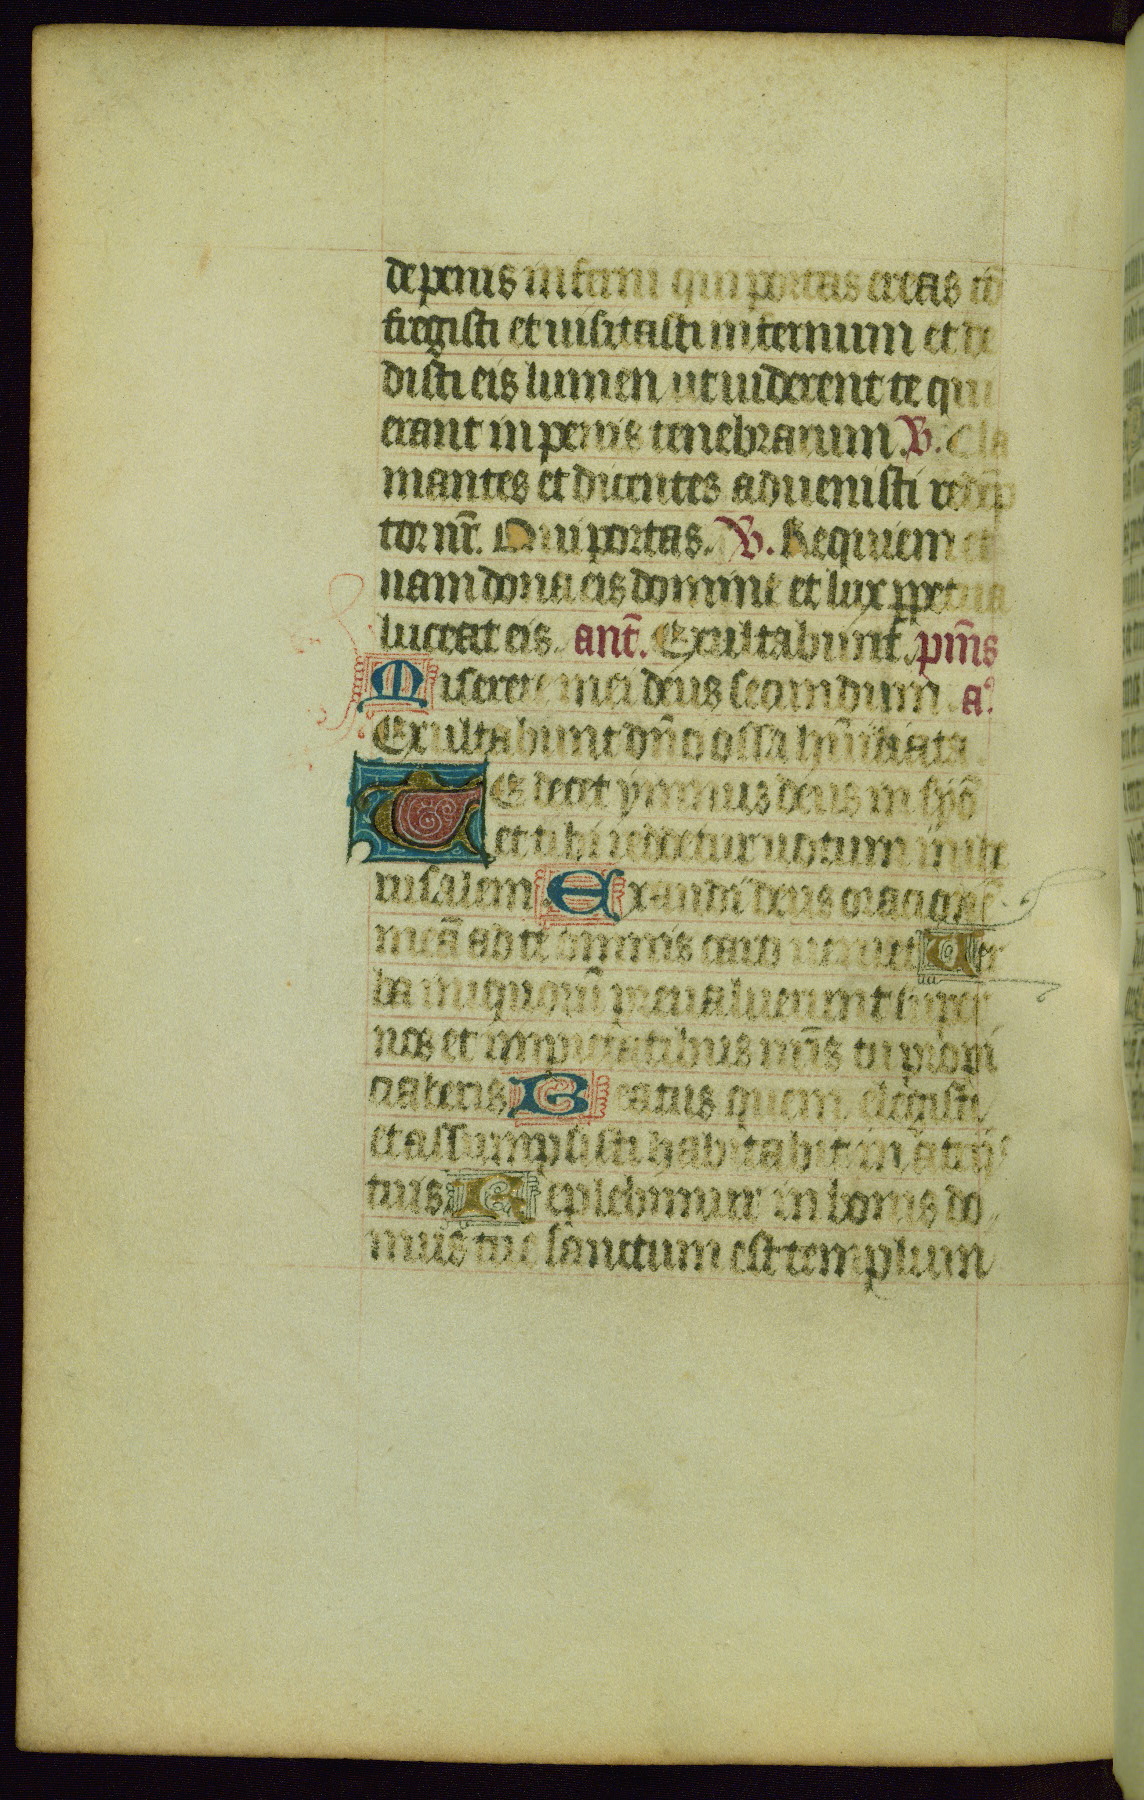 de penis inferni qui portas ereas cō
fregisti et uisitasti infernum et de
disti eis lumen ut uiderent te qui
erant in penis tenebrarum. V. Cla
mantes et dicentes aduenisti redēp
tor nr̄. Qui portas. V. Requiem et
nam dona eis domine et lux ꝑpetua
luceat eis. ant̄. Exultabunt. pm̄s
Miserere mei deus secundum. a.
Exultabunt dn̄o ossa hūiliata.
Te decet ymnus deus in syō
et tibi reddetur uotum in ihe
rusalem Exaudi deus oracionē
meā ad te omnis caro ueniet Uer
ba iniquorū preualuerunt super
nos et impietatibus nr̄is tu propi
ciaberis Beatus quem elegisti
et assumpsisti habitabit in atrijs
tuis Replebimur in bonis do
mus tue sanctum est templum